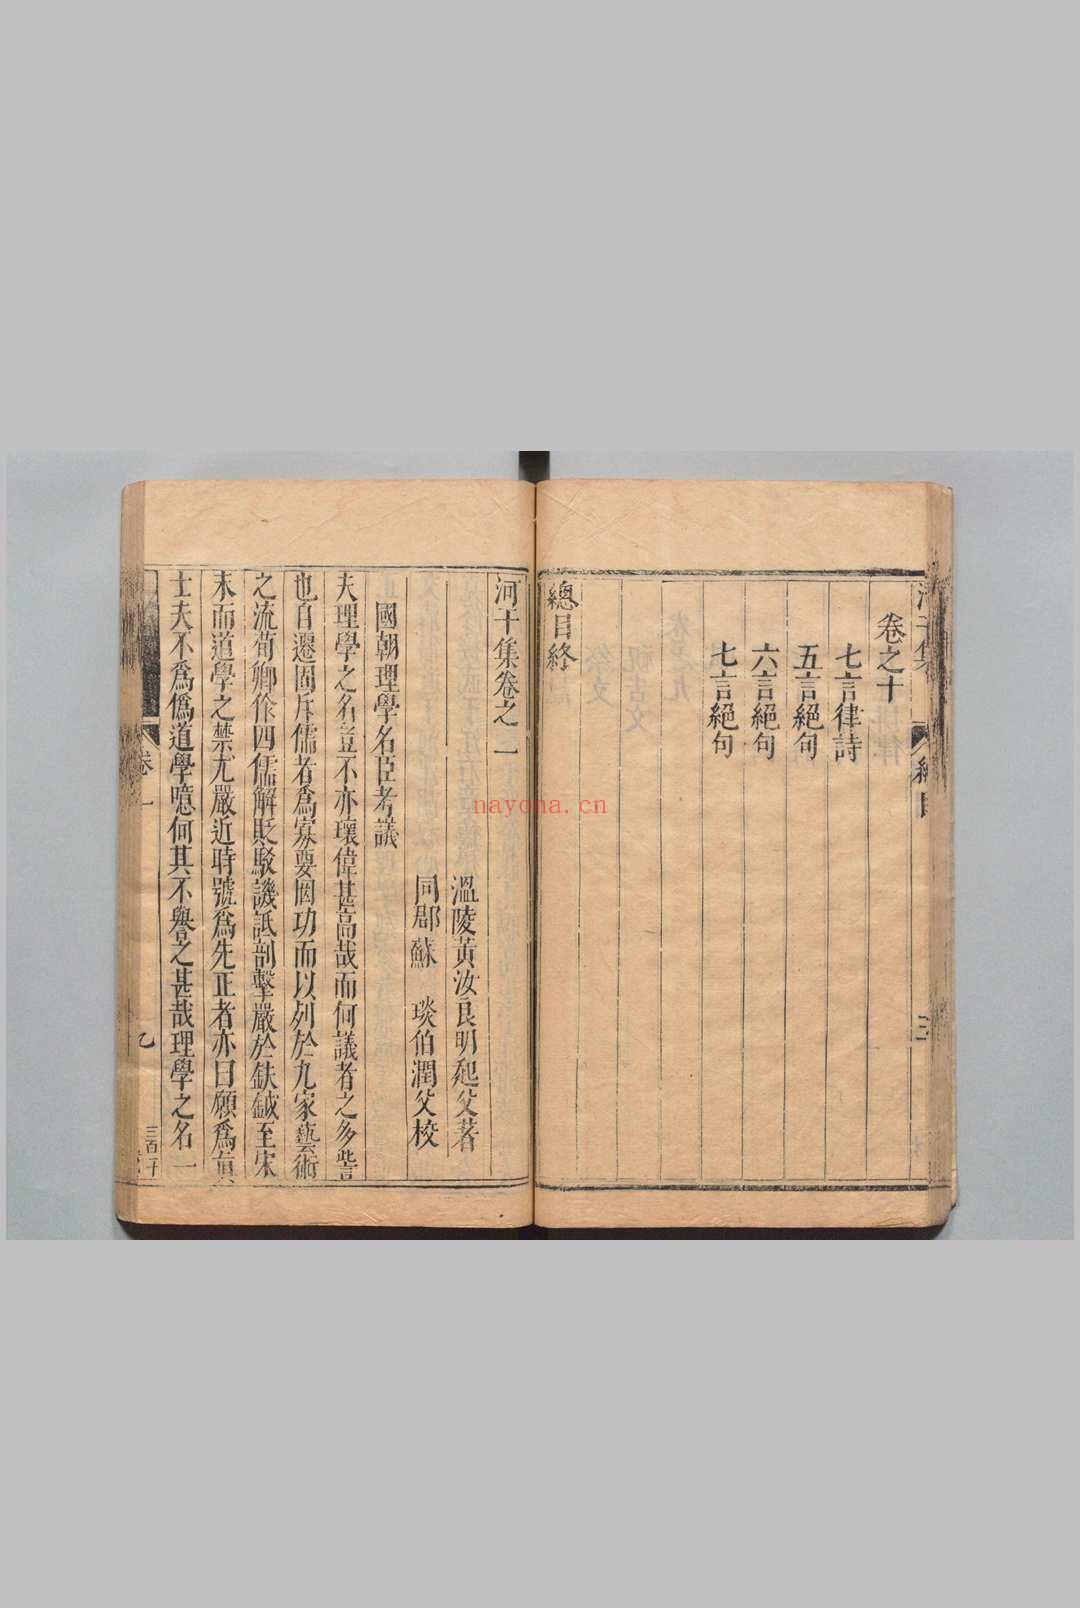 卷之十
七言律詩
五言絕句
六言絕句
七言絕句
總目終
河干集卷之一
溫陵黃汝良明起父著
同郡蘇 琰伯潤父校
國朝理學名臣考議
夫理學之名豈不亦瓌偉甚高哉而何議者之多訾
也自遷固斥儒者爲寡要因功而以列於九家藝術
之流荀卿作四儒解貶駁譏詆剖擊嚴於鈇鉞至宋
末而道學之禁尤嚴近時號爲先正者亦曰願爲眞
士夫不爲僞道學噫何其不譽之甚哉理學之名一
卷一
三百二十
nayona.cn